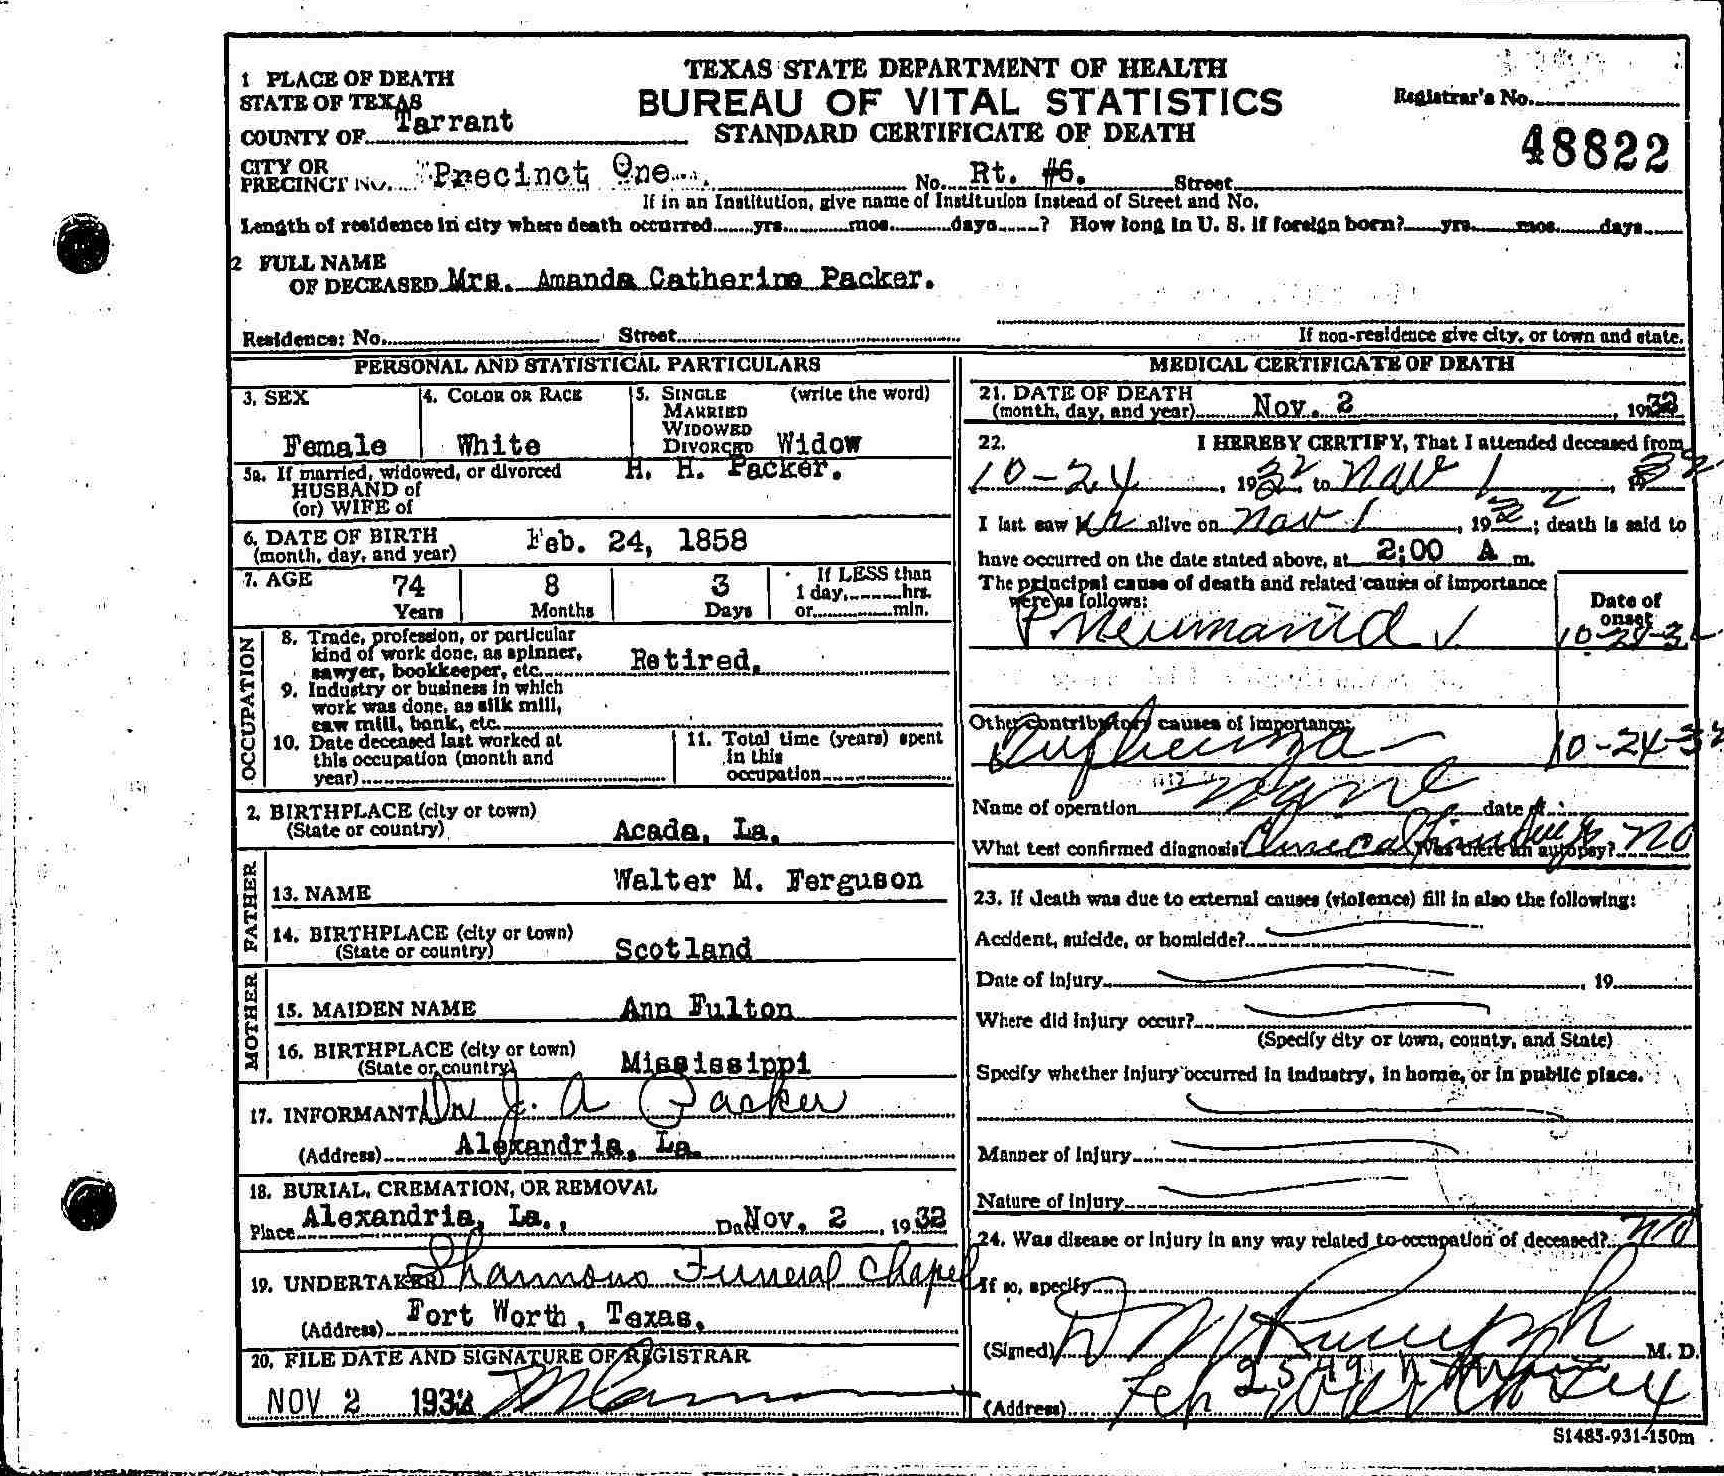 TEXAS STATE DEPARTMENT OF HEALTH
BUREAU OF VITAL STATISTICS
STANDARD CERTIFICATE OF DEATH
1 PLACE OF DEATH
STATE OF TEXAS
COUNTY OF Tarrant
Registrar's No.
48822
CITY OR
PRECINCT NO. Precinct One. No. Rt. #6. Street
If in an Institution, give name of Institution Instead of Street and No.
Length of residence in city where death occurred yrs. mos. days ? How long in U. S. if foreign born? yrs. mos. days
2 FULL NAME
OF DECEASED Mrs. Amanda Catherine Packer.
Residence: No. Street
If non-residence give city, or town and state.
PERSONAL AND STATISTICAL PARTICULARS
3. SEX Female
4. COLOR OR RACE White
5. SINGLE (write the word)
MARRIED
WIDOWED
DIVORCED Widow
5a. If married, widowed, or divorced H. H. Packer.
HUSBAND of
(or) WIFE of
6. DATE OF BIRTH Feb. 24, 1858
(month, day, and year)
7. AGE 74 Years 8 Months 3 Days
If LESS than
1 day, hrs.
or min.
OCCUPATION
8. Trade, profession, or particular
kind of work done, as spinner,
sawyer, bookkeeper, etc. Retired.
9. Industry or business in which
work was done, as silk mill,
saw mill, bank, etc.
10. Date deceased last worked at
this occupation (month and
year)
11. Total time (years) spent
in this
occupation
2. BIRTHPLACE (city or town)
(State or country) Acada, La.
FATHER
13. NAME Walter M. Ferguson
14. BIRTHPLACE (city or town)
(State or country) Scotland
MOTHER
15. MAIDEN NAME Ann Fulton
16. BIRTHPLACE (city or town)
(State or country) Mississippi
17. INFORMANT Dr J. A Packer
(Address) Alexandria, La.
18. BURIAL, CREMATION, OR REMOVAL
Place Alexandria, La., Da Nov. 2, 1932
19. UNDERTAKER Shannons Funeral Chapel
(Address) Fort Worth, Texas.
20. FILE DATE AND SIGNATURE OF REGISTRAR
NOV 2 1932
MEDICAL CERTIFICATE OF DEATH
21. DATE OF DEATH
(month, day, and year) Nov. 2, 1932
22. I HEREBY CERTIFY, That I attended deceased from
10-24, 1932 to Nov 1, 1932
I last saw her alive on Nov 1, 1932; death is said to
have occurred on the date stated above, at 2:00 A m.
The principal cause of death and related causes of importance
were as follows:
Date of
onset
Pneumonia
Other contributory causes of importance:
Influenza 10-24-32
Name of operation None date of
What test confirmed diagnosis? Clinical findings Was there an autopsy? No
23. If death was due to external causes (violence) fill in also the following:
Accident, suicide, or homicide?
Date of injury , 19
Where did injury occur?
(Specify city or town, county, and State)
Specify whether injury occurred in industry, in home, or in public place.
Manner of injury
Nature of injury
24. Was disease or injury in any way related to occupation of deceased? No
If so, specify
(Signed) M. D.
(Address)
S1485-931-150m